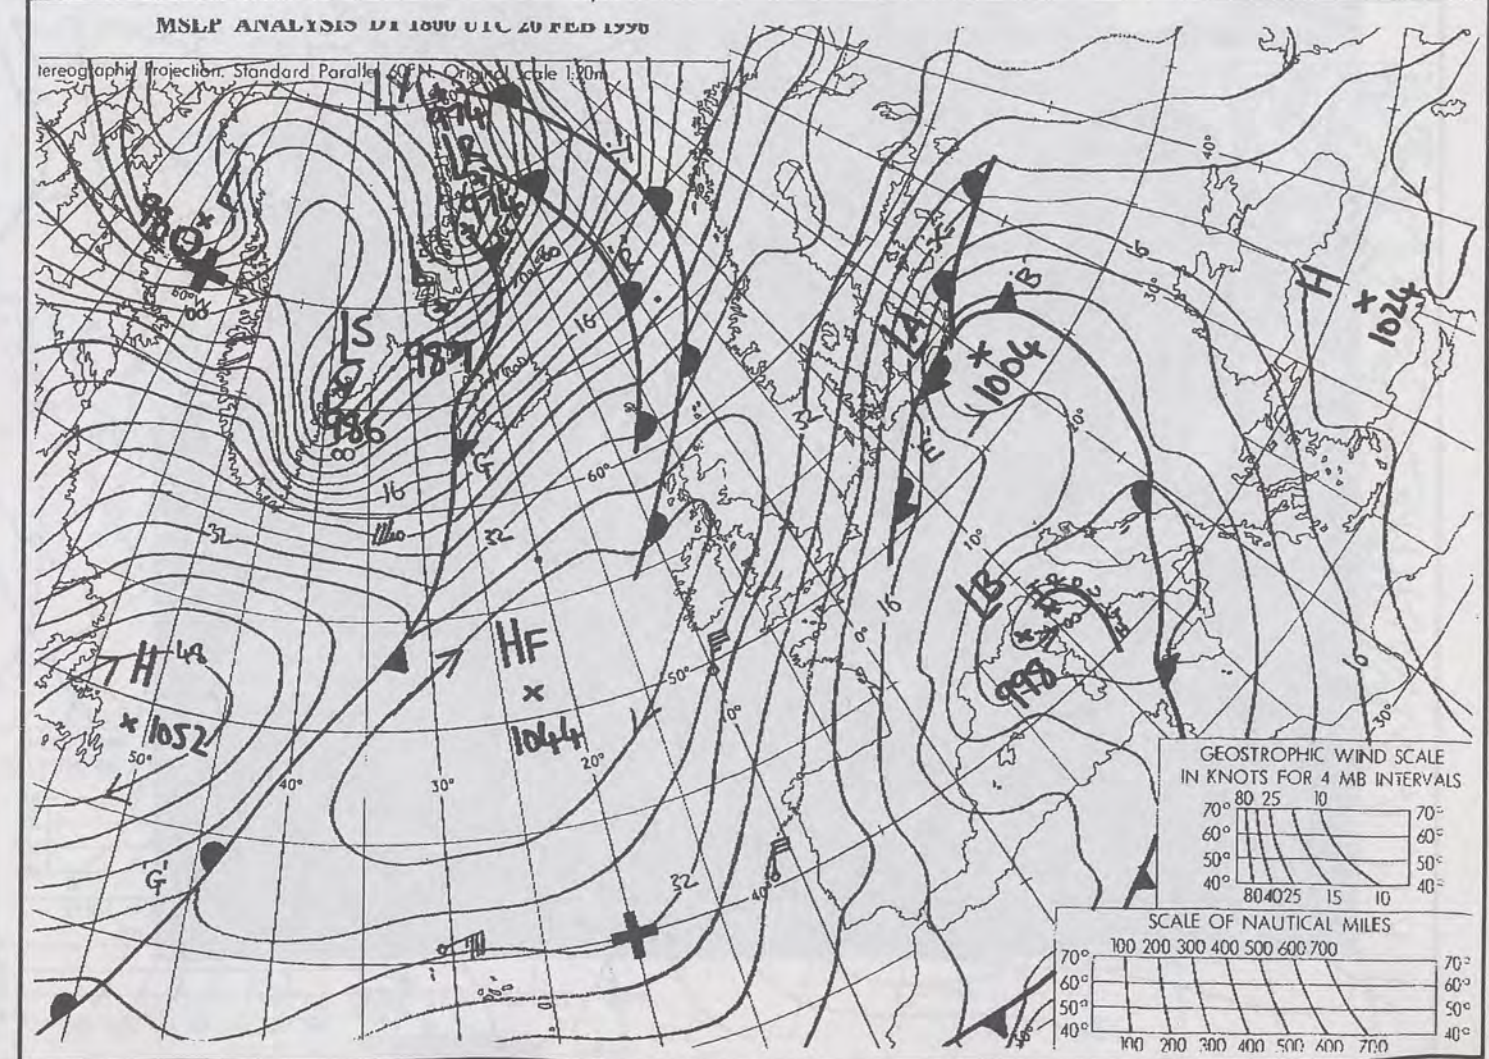 MSLP ANALYSIS DT 1800 UTC 20 FEB 1996
tereographic Projection. Standard Parallel 60°N. Original scale 1:20m
974
974
LS
987
986
60°W
16
16
32
32
60°
'R'
'G'
H 48
1052
50°
40°
30°
20°
HF
1044
50°
0°
0°
10°
20°
30°
40°
LA
1004
'B'
'E'
H
1024
16
LB
998
30°
'G'
32
40°
GEOSTROPHIC WIND SCALE
IN KNOTS FOR 4 MB INTERVALS
80 25 10
70° 70°
60° 60°
50° 50°
40° 40°
80 40 25 15 10
SCALE OF NAUTICAL MILES
100 200 300 400 500 600 700
70° 70°
60° 60°
50° 50°
40° 40°
100 200 300 400 500 600 700